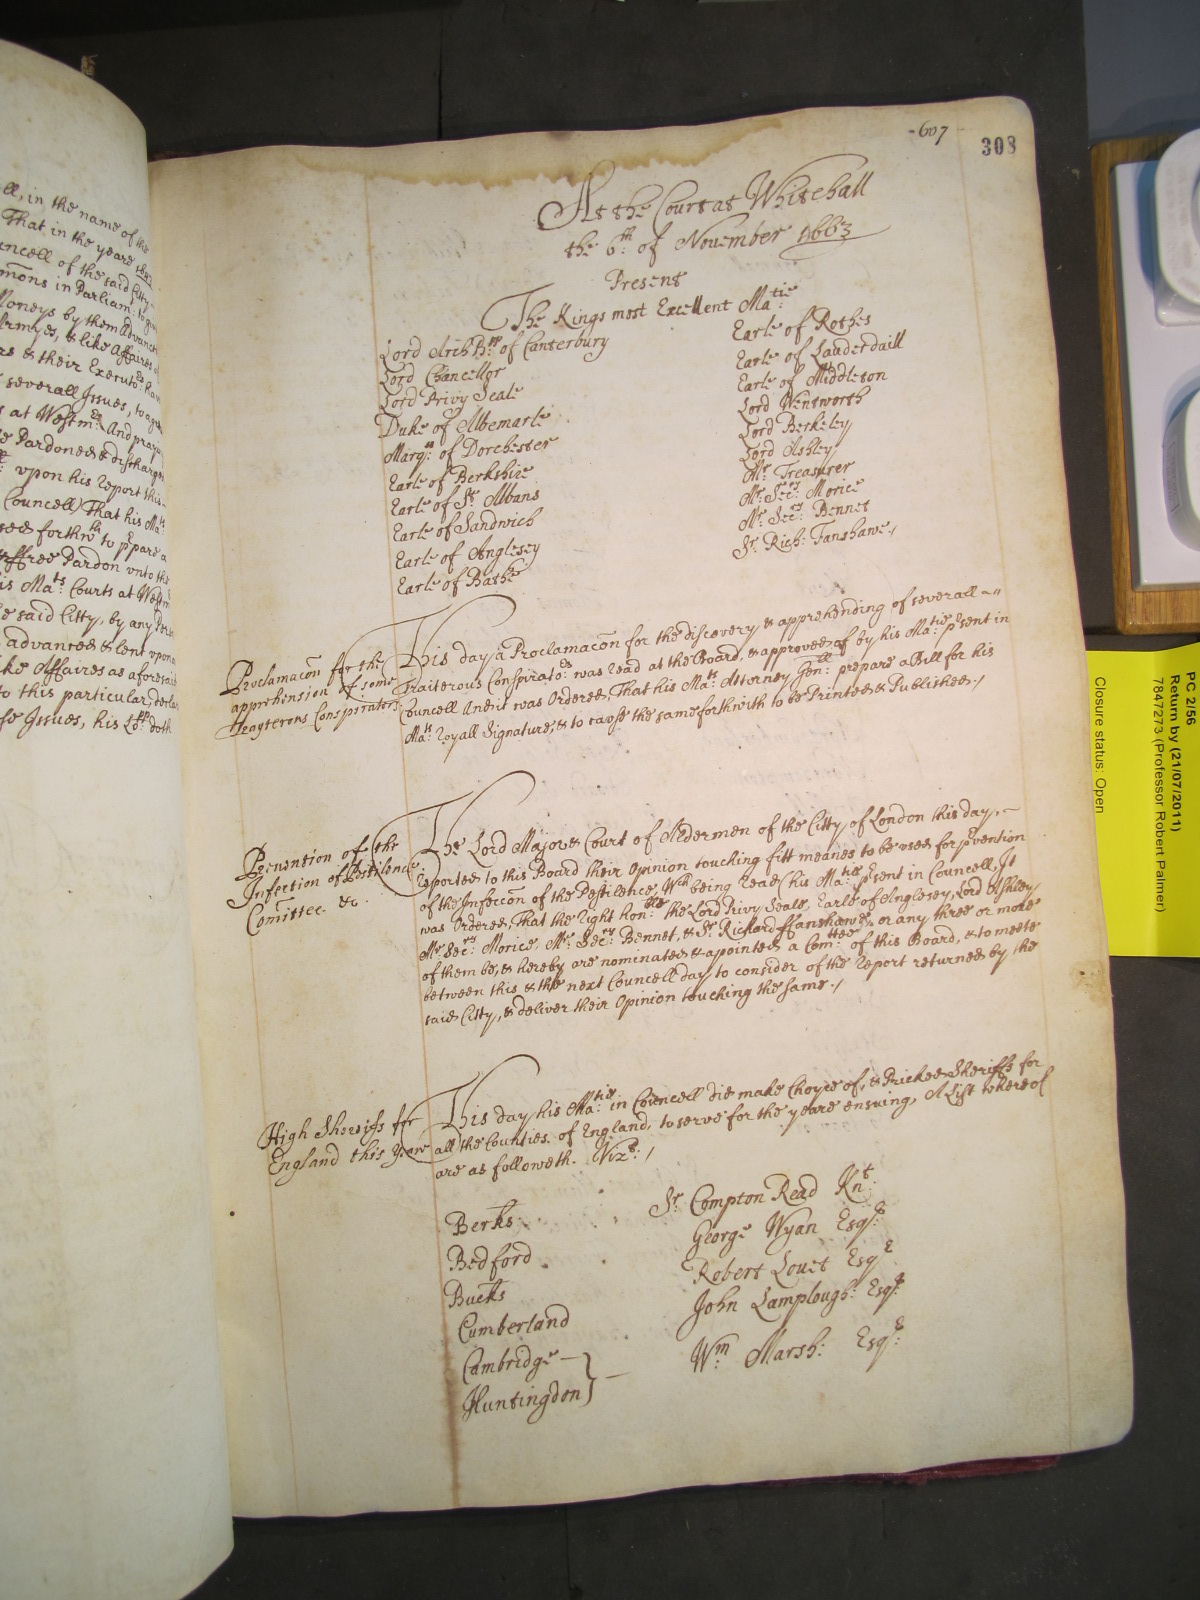 -607-
308
At the Court at Whitehall
the 6th of November 1663
Present
The Kings most Excellent Ma:tie
Lord Arch Bpp of Canterbury
Lord Chancellor
Lord Privy Seale
Duke of Albemarle
Marq:ss of Dorchester
Earle of Berkshire
Earle of St Albans
Earle of Sandwich
Earle of Anglesey
Earle of Bathe
Earle of Rothes
Earle of Lauderdaill
Earle of Middleton
Lord Wentworth
Lord Berkeley
Lord Ashley
Mr Treasurer
Mr Sec:ry Morice
Mr Sec:ry Bennet
Sr Rich: Fanshawe./
Proclamacon for the
apprhension of some
Trayterous Conspirators
This day a Proclamacon for the discovery & apprehending of severall
Traiterous Conspirato:rs was read at the Board, & approved of by his Ma:tie p̱sent in
Councell And it was Ordered, That his Ma:ts Attorney Gen:ll prepare a Bill for his
Ma:ts Royall Signature, & to cause the same forthwith to be Printed & Published./
Prevention of the
Infection of Pestilence
Comittee &c.
The Lord Mayor & Court of Aldermen of the Citty of London this day,
reported to this Board their Opinion touching fitt meanes to be used for p̱vention
of the Infeccon of the Pestilence, Wch being read (his Ma:tie p̱sent in Councell) It
was Ordered, That the Right hon:ble the Lord Privy Seale, Earle of Anglesey, Lord Ashley
Mr Sec:ry Morice, Mr Sec:ry Bennet, & Sr Richard ffanshawe, or any three or more
of them be, & hereby are nominated & apointed a Com:ttee of this Board, & to meete
between this & the next Councell day to consider of the Report returned by the
said Citty, & deliver their Opinion touching the same./
High Sheriffs for
England this Year
This day his Ma:tie in Councell did make Choyce of, & Pricked Sheriffs for
all the Counties of England, to serve for the yeare ensuing, A List whereof
are as followeth. Vizt: /
Berks: Sr Compton Read Knt:
Bedford George Wyan Esqr:
Bucks Robert Lovet Esqr
Cumberland John Lamplough: Esqr:
Cambridge
Huntingdon } Wm Marsh: Esqr:
ll, in the name of the
That in the yeare
uncell of the said Citty
mons in Parliam:t
Moneys by them advanced
Armyes, & like Affaires
& their Executo:rs
severall Issues, to
s at Westm:r And
Pardoned & discharged
upon his Report this
Councell) That his Ma:ts
forthwth to p̱pare a
ffree Pardon unto the
is Ma:ts Courts at
e said Citty, by any
advanced & lent upon
ke Affaires as aforesaid
to this particular,
Issues, his doth
PC 2/56
Return by (21/07/2011)
7847273 (Professor Robert Palmer)
Closure status: Open